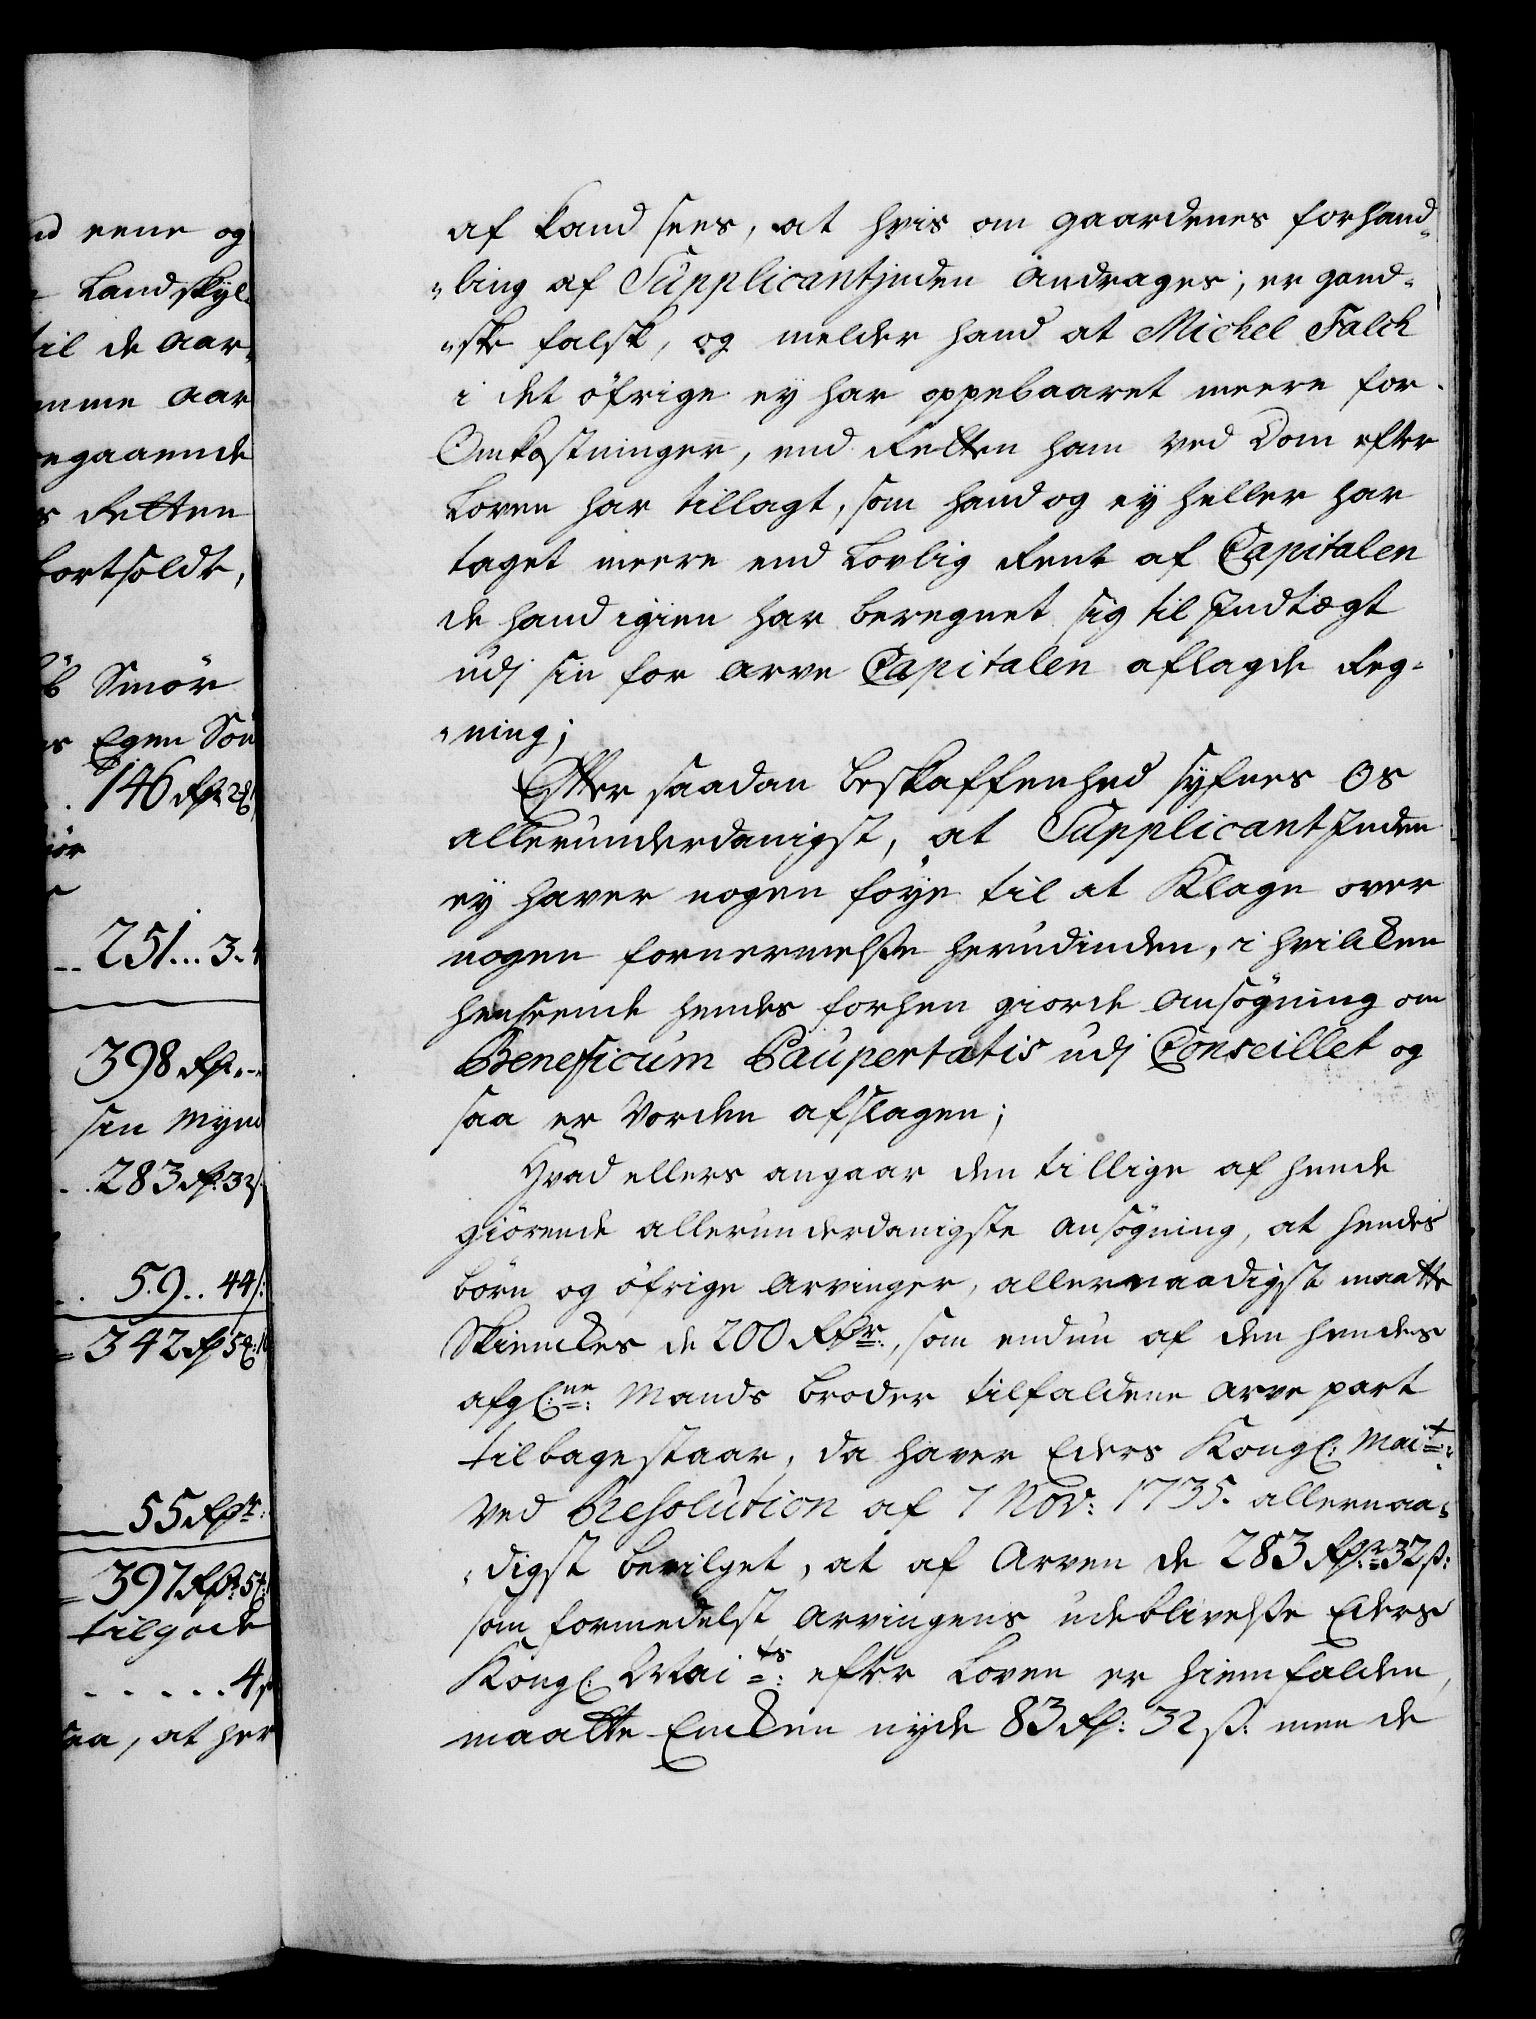 eene og
Landskyl
til de Aar
samme Aar
egaaende
Retten
bortsoldt,
Smör
Egen Sön
146 Rd 2
251...3.
398 Rd.
sin Mÿnd
283 Rd: 32ß
59..44ß:
342 Rd 5
55 Rdr:
397 Rd: 5
tilgode
.....4
saa, at her
af kand sees, at hvis om gaardenes forhand„
„ling af Supplicantinden andrages; er gand„
„ske falsk, og melder hand at Michel Falch
i det öfrige eÿ har oppebaaret meere for
Omkostninger, end Retten ham ved Dom efter
Loven har tillagt, som hand og eÿ heller har
taget meere end Lovlig Rente af Capitalen
de hand igien har beregnet sig til Indtægt
udj sin for arve Capitalen aflagde Reg„
„ning;
Efter saadan beskaffenhed sÿfnes Os
allerunderdanigst, at SupplicantInden
eÿ haver nogen föÿe til at Klage over
nogen fornermelsse herudinden, i hvilcken
henseende hendes forhen giorde ansögning om
Beneficum Paupertatis udj Conseillet og
saa er Vorden afslagen;
Hvad ellers angaar den tillige af hende
giörende allerunderdanigste ansögning, at hendes
börn og öfrige Arvinger, allernaadigst maatte
Skienckes de 200 Rdr:, som endnu af den hendes
afgl:ne: Mands broder tilfaldene Arve part
tilbagestaar, da haver Eders Kongl: Mait:
ved Resolution af 7 Nov: 1735. allernaa„
„digst bevilget, at af Arven de 283 Rdr: 32ß:
som formedelst Arvingens udeblivelsse Eders
Kongl: Maits: efter Loven er hiemfalden,
maatte Encken nÿde 83 Rd: 32ß: men de